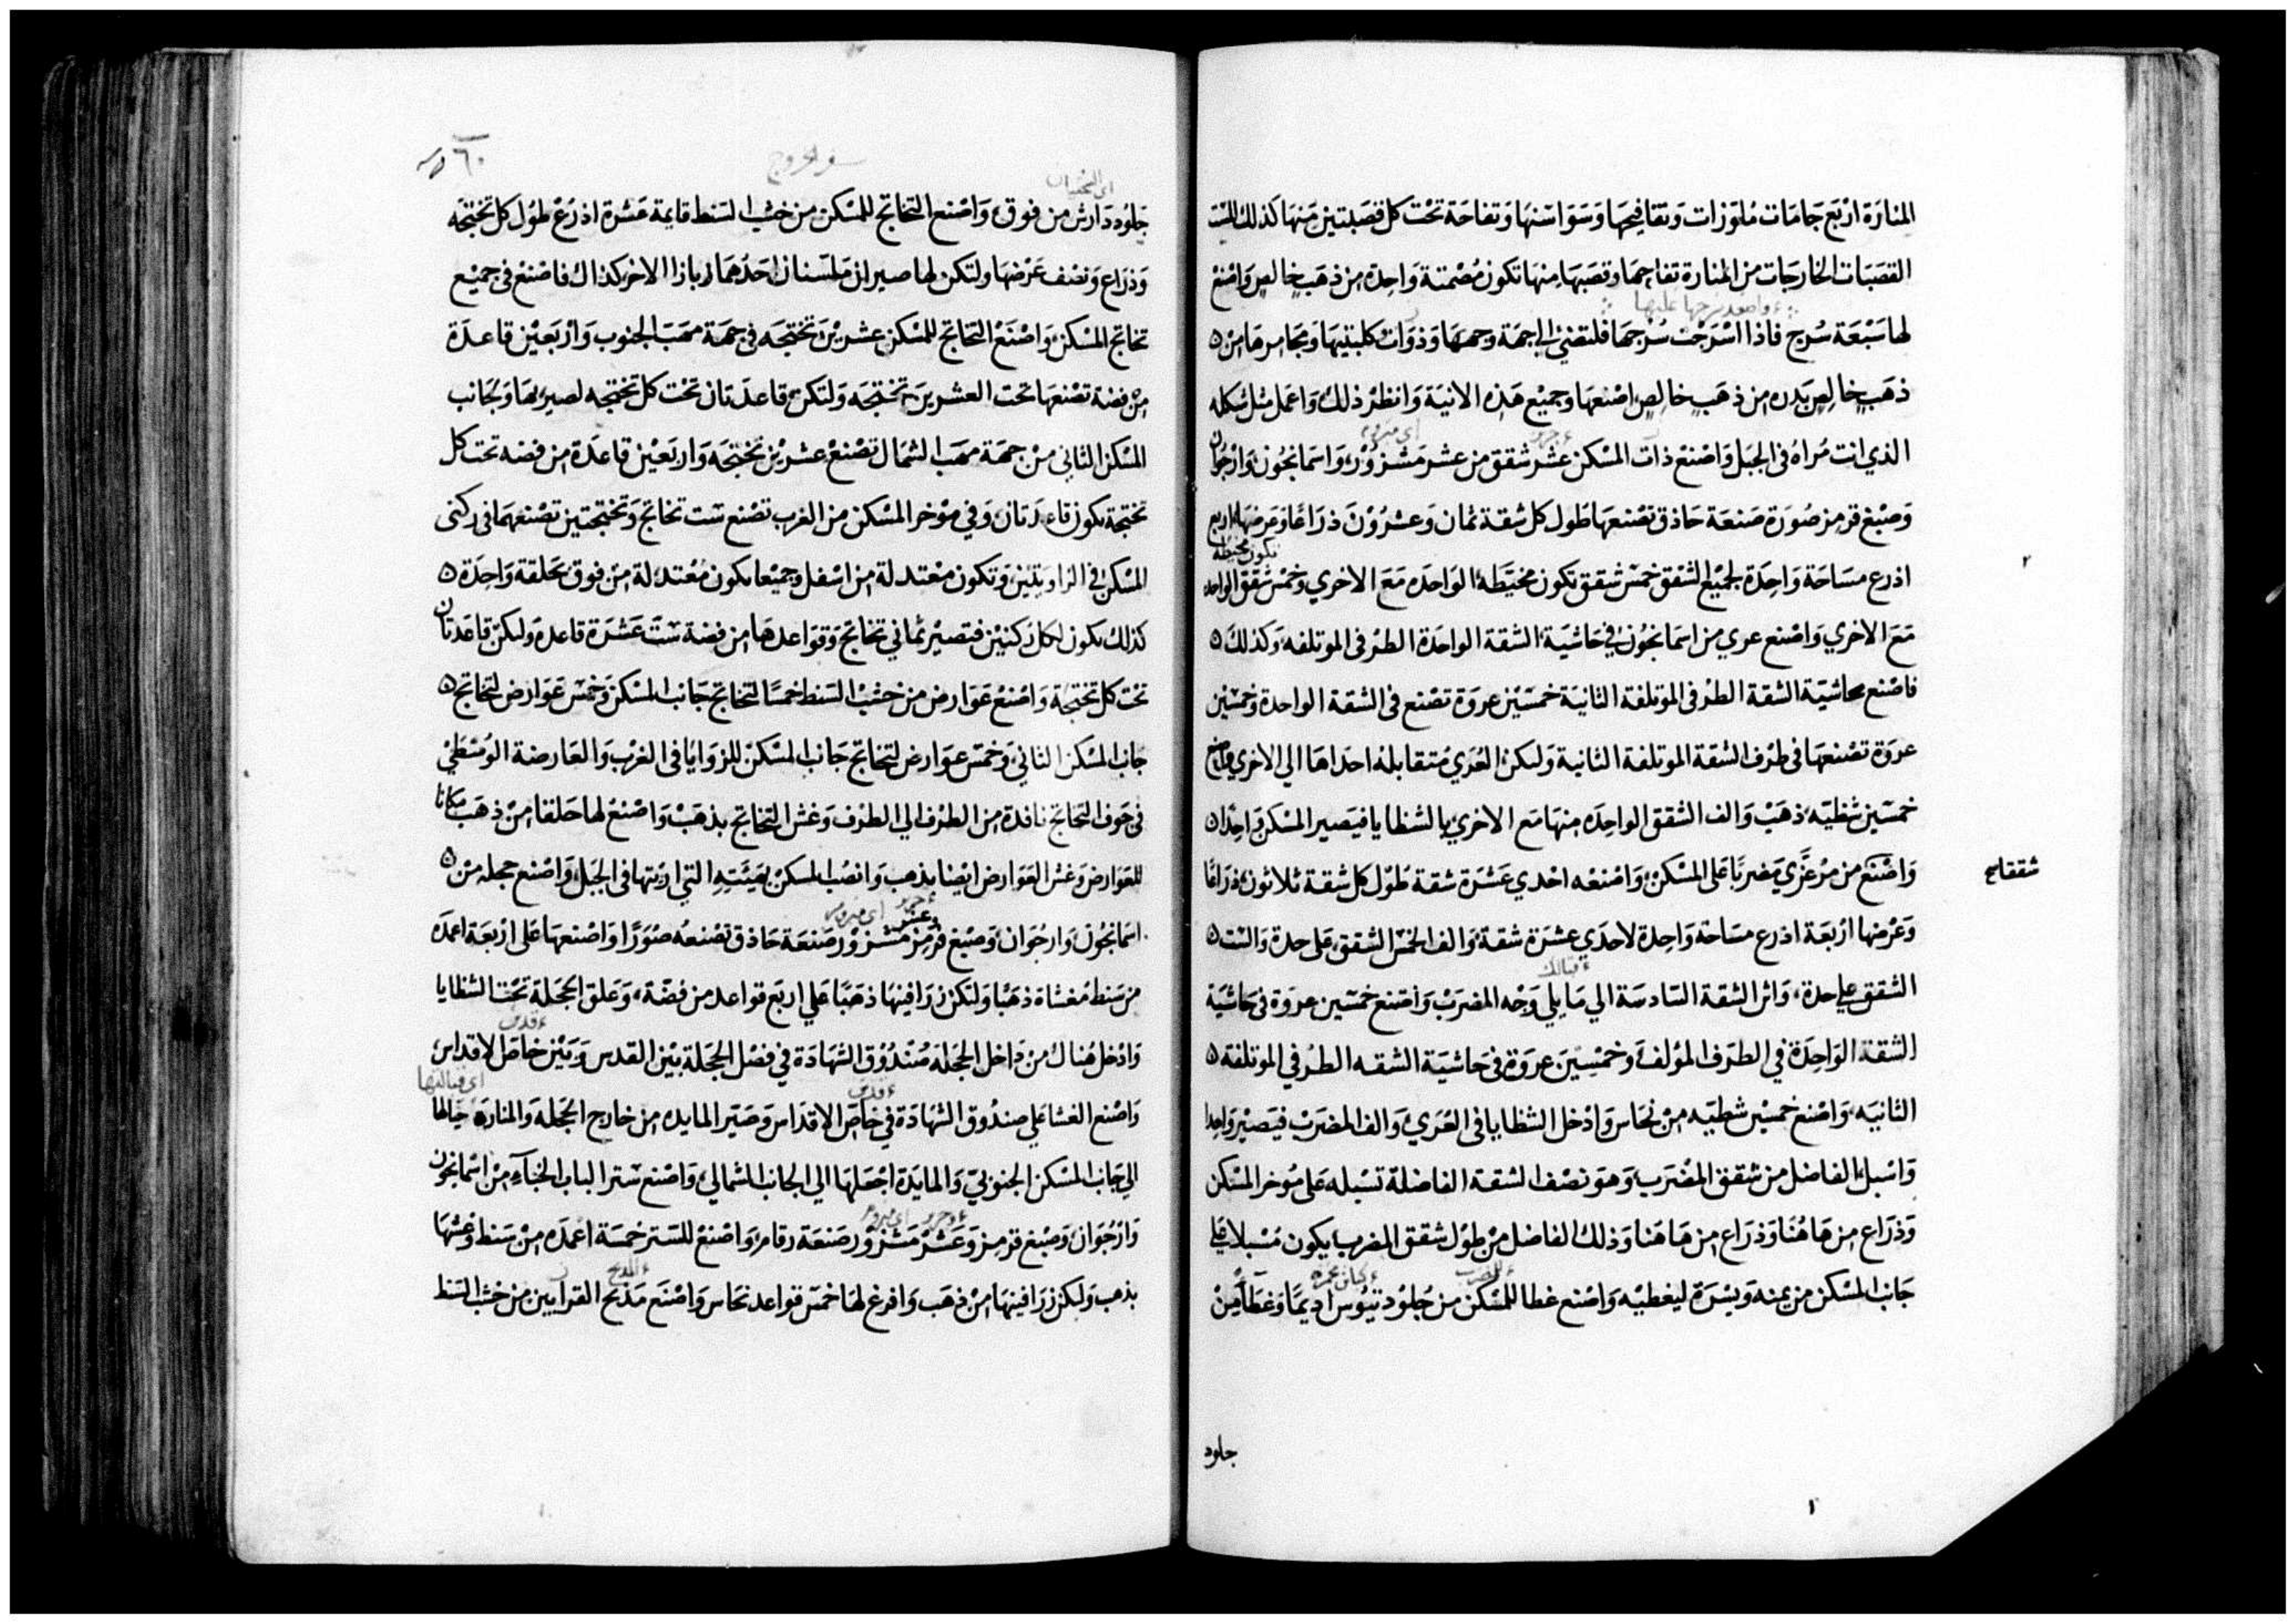 المنارة اربع جامات ملوزات وتفافيحها وسواسنها وتفاحة تحت كل قصبتين منها كذلك للست
القصبات الخارجات من المنارة تفاحها وقصبها منها تكون مصمتة واحدة من ذهب خالص واصنع
لها سبعة سرج فاذا اسرجت سرجها فلتضئ الي جهة وجهها وذوات كلبتيها ومجامرها من
ذهب خالص ببدره من ذهب خالص اصنعها وجميع هذه الانية وانظر ذلك واعمل مثل شكله
الذي انت مراه في الجبل واصنع ذات المسكن عشر شقق من عشر مشزور واسمانجون وارجوان
وصبغ قرمز صورة صنعة حاذق تصنعها طول كل شقة ثمان وعشرون ذراعا وعرضها اربع
تكون مخيطة
اذرع مساحة واحدة لجميع الشقق خمس شقق تكون مخيطة الواحده مع الاخري وخمس شقق الواحده
مع الاخري واصنع عري من اسمانجون في حاشية الشقة الواحدة الطرفي الموتلفه وكذلك
فاصنع بحاشية الشقة الطرفي الموتلفة الثانية خمسين عروة تصنع في الشقة الواحدة وخمسين
عروة تصنعها في طرف الشقة الموتلفة الثانية ولتكن العري متقابلة احداها الي الاخري واصنع
خمسين شظيه ذهب والف الشقق الواحده منها مع الاخري بالشظايا فيصير المسكن واحدا
واصنع من مرعزي مضربا علي المسكن واصنعه احدي عشرة شقة طول كل شقة ثلاثون ذراعا
وعرضها اربعة اذرع مساحة واحدة لاحدي عشرة شقة والف الخمس الشقق علي حدة والست
قبالك
الشقق علي حدة واثر الشقة السادسة الي ما يلي وجه المضرب واصنع خمسين عروة في حاشية
الشقة الواحدة في الطرف المؤلف وخمسين عروة في حاشية الشقه الطرفي الموتلفة
الثانيه واصنع خمسين شظيه من نحاس وادخل الشظايا في العري والف المضرب فيصير واحدا
واسبل الفاضل من شقق المضرب وهو نصف الشقة الفاضلة تسبله علي موخر المسكن
وذراع من هاهنا وذراع من هاهنا وذلك الفاضل من طول شقق المضرب يكون مسبلا علي
جانب المسكن من يمنه ويسرة ليغطيه واصنع غطا للمسكن من جلود تيوس اديما وغطاء من
جلود
سفر الخروج
٦٠
جلود دارش من فوق واصنع التخاتج للمسكن من خشب السنط قايمة عشرة اذرع طول كل تختجه
وذراع ونصف عرضها ولتكن لها صيران ملسنان احدهما بازا الاخر كذاك فاصنع في جميع
تخاتج المسكن واصنع التخاتج للمسكن عشرين تختجه في جهة مهب الجنوب واربعين قاعدة
من فضة تصنعها تحت العشرين تختجه ولتكن قاعدتان تحت كل تختجه لصيريها ولجانب
المسكن الثاني من جهة مهب الشمال تصنع عشرين تختجه واربعين قاعدة من فضه تحت كل
تختجة تكون قاعدتان وفي موخر المسكن من الغرب تصنع ست تخاتج وتختجتين تصنعهما في ركني
المسكن في الزاويتين وتكون معتدلة من اسفل وجميعا تكون معتدلة من فوق بحلقة واحدة
كذلك تكون لكل ركنين فتصير ثماني تخاتج وقواعدها من فضة ست عشرة قاعدة ولتكن قاعدتان
تحت كل تختجة واصنع عوارض من خشب السنط خمسا لتخاتج جانب المسكن وخمس عوارض لتخاتج
جانب المسكن الثاني وخمس عوارض لتخاتج جانب المسكن للزوايا في الغرب والعارضة الوسطي
في جوف التخاتج نافذة من الطرف الي الطرف وغش التخاتج بذهب واصنع لها حلقا من ذهب مكانا
للعوارض وغش العوارض ايضا بذهب وانصب المسكن بهيئته التي اريتها في الجبل واصنع حجله من
اسمانجون وارجوان وصبغ قرمز وعشر مشزور صنعة حاذق تصنعه صورا واصنعها علي اربعة اعمدة
من سنط مغشاة ذهبا ولتكن زرافينها ذهبا علي اربع قواعد من فضة وعلق الحجلة تحت الشظايا
وادخل هناك من داخل الحجله صندوق الشهادة في فصل الحجلة بين القدس وبين خاص الاقداس
اي قبالتها
واصنع الغشا علي صندوق الشهادة في خاص الاقداس وصير المايده من خارج الحجله والمنارة حيالها
الي جانب المسكن الجنوبي والمايدة اجعلها الي الجانب الشمالي واصنع سترا لباب الخباء من اسمانجون
وارجوان وصبغ قرمز وعشر مشزور صنعة رقام واصنع للستر خمسة اعمده من سنط وغشها
بذهب ولتكن زرافينها من ذهب وافرغ لها خمس قواعد نحاس واصنع مذبح القرابين من خشب السنط